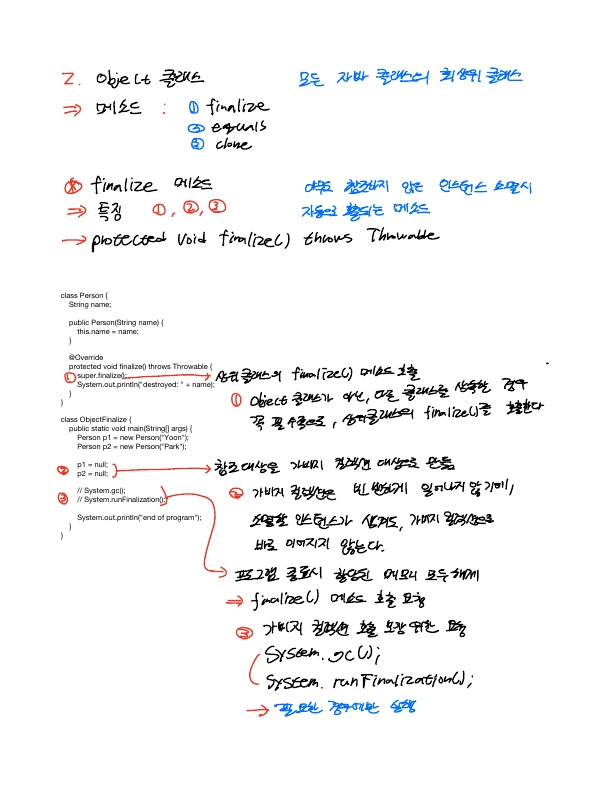 2. Object 클래스 모든 자바 클래스의 최상위 클래스
⇒ 메소드 : ① finalize
② equals
③ clone
※ finalize 메소드 아무도 참조하지 않는 인스턴스 소멸시
⇒ 특징 ①, ②, ③ 자동으로 호출되는 메소드
→ protected void finalize() throws Throwable
class Person {
String name;
public Person(String name) {
this.name = name;
}
@Override
protected void finalize() throws Throwable {
① super.finalize(); → 상위클래스의 finalize() 메소드 호출
System.out.println("destroyed: " + name);
}
}
① Object 클래스가 아닌, 다른 클래스를 상속할 경우
꼭 필수적으로, 상위클래스의 finalize()를 호출한다
class ObjectFinalize {
public static void main(String[] args) {
Person p1 = new Person("Yoon");
Person p2 = new Person("Park");
② p1 = null; → 참조대상을 가비지 컬렉션 대상으로 만듦
p2 = null;
// System.gc();
③ // System.runFinalization();
System.out.println("end of program");
}
}
② 가비지 컬렉션은 빈번하게 일어나지 않기에,
소멸할 인스턴스가 생겨도, 가비지 컬렉션으로
바로 이어지지 않는다.
→ 프로그램 종료시 할당된 메모리 모두 해제
⇒ finalize() 메소드 호출 요청
③ 가비지 컬렉션 호출 보장 위한 요청
System.gc();
System.runFinalization();
→ 필요한 경우에만 실행